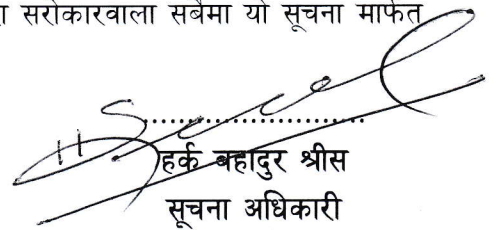 सरोकारवाला सबैमा यो सूचना मार्फत
हर्क बहादुर श्रीस
सूचना अधिकारी